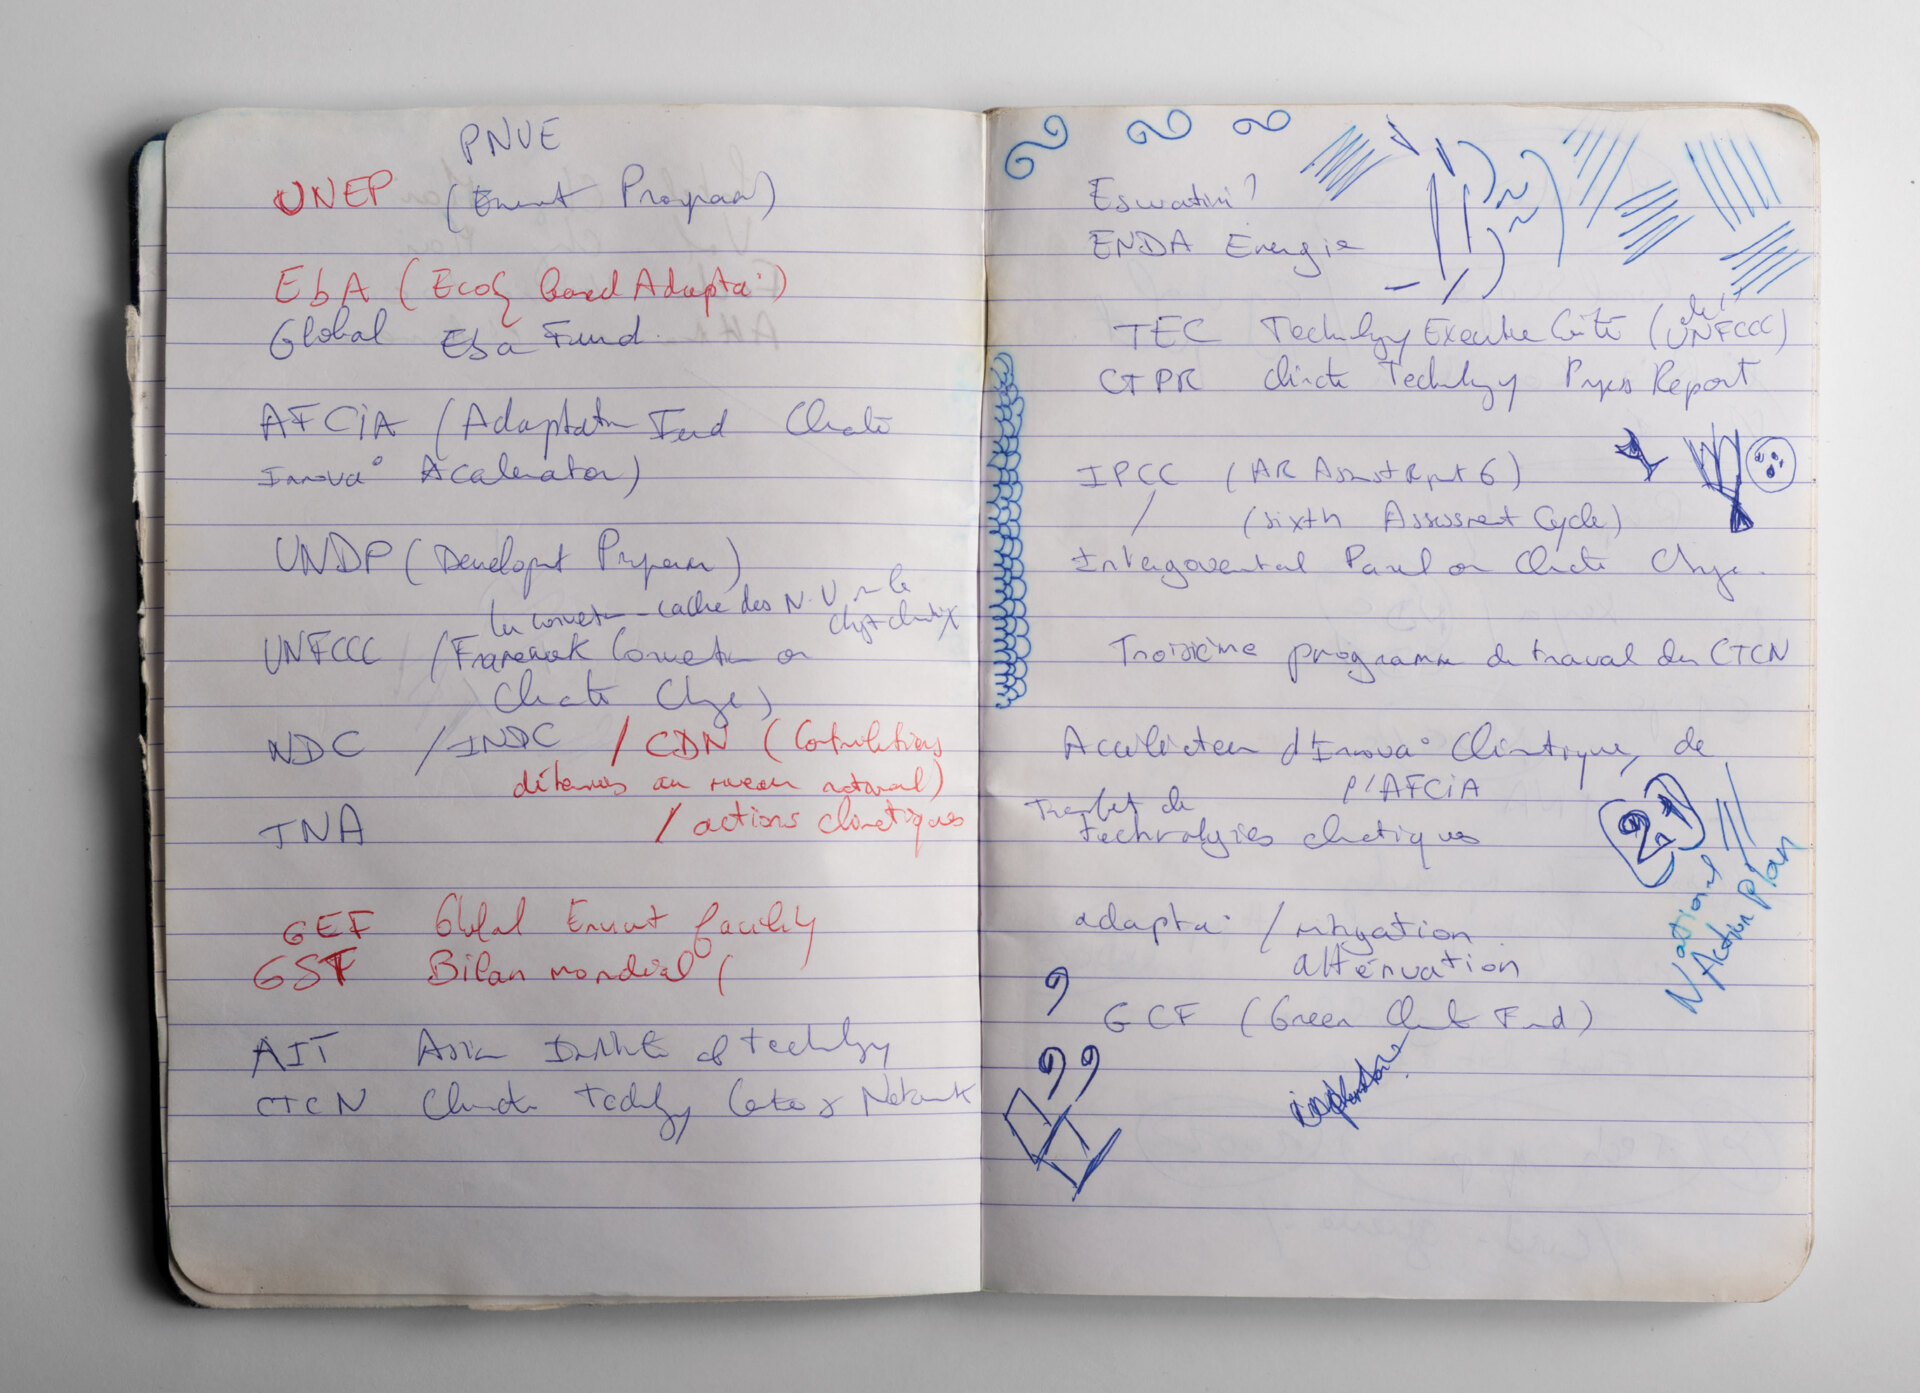 PNUE
UNEP (Envmt Program)
EbA (Ecos based Adapta°)
Global EbA Fund.
AFCiA (Adaptation Fund Climate
Innova° Accelerator)
UNDP (Developt Program)
la convention-cadre des N.U sur le
chgt climatiqx
UNFCCC (Framework Convention on
Climate Change)
NDC / INDC / CDN (Contributions
déterminées au niveau national)
TNA / actions climatiques
GEF Global Envmt facility
GST Bilan mondial (
AIT Asian Institute of Technology
CTCN Climate Technology Center & Network
Eswatini?
ENDA Energie
TEC Technology Executive Comité (de l' UNFCCC)
CTPR Climate Technology Progress Report
IPCC (AR Assmst Rprt 6)
/ (sixth Assessment Cycle)
Intergovernmental Panel on Climate Change.
Troisième programme de travail du CTCN
Accélérateur d'Innova° Climatique, de
l'AFCiA
Transfert de
technologies climatiques
2.1
National
Action plan
adapta° / mitigation
atténuation
GCF (Green Climate Fund)